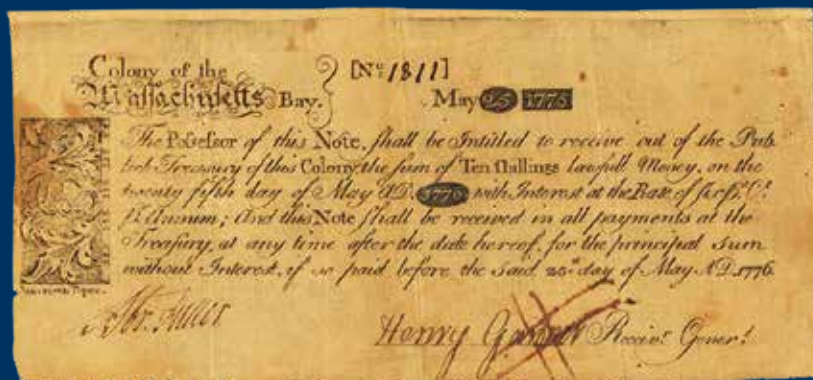 Colony of the [No. 1811]
Massachusetts Bay. May 25 1775
The Possessor of this Note, shall be Intitled to receive out of the Pub
lick Treasury of this Colony, the sum of Ten Shillings lawfull Money, on the
twenty fifth day of May AD. 1776 with Interest at the Rate of six Pr. Ct.
Pr. Annum; And this Note shall be received in all payments at the
Treasury, at any time after the date hereof, for the principal Sum
without Interest, if so paid before the said 25th day of May AD. 1776.
Henry Gardner Receivr. Generl.